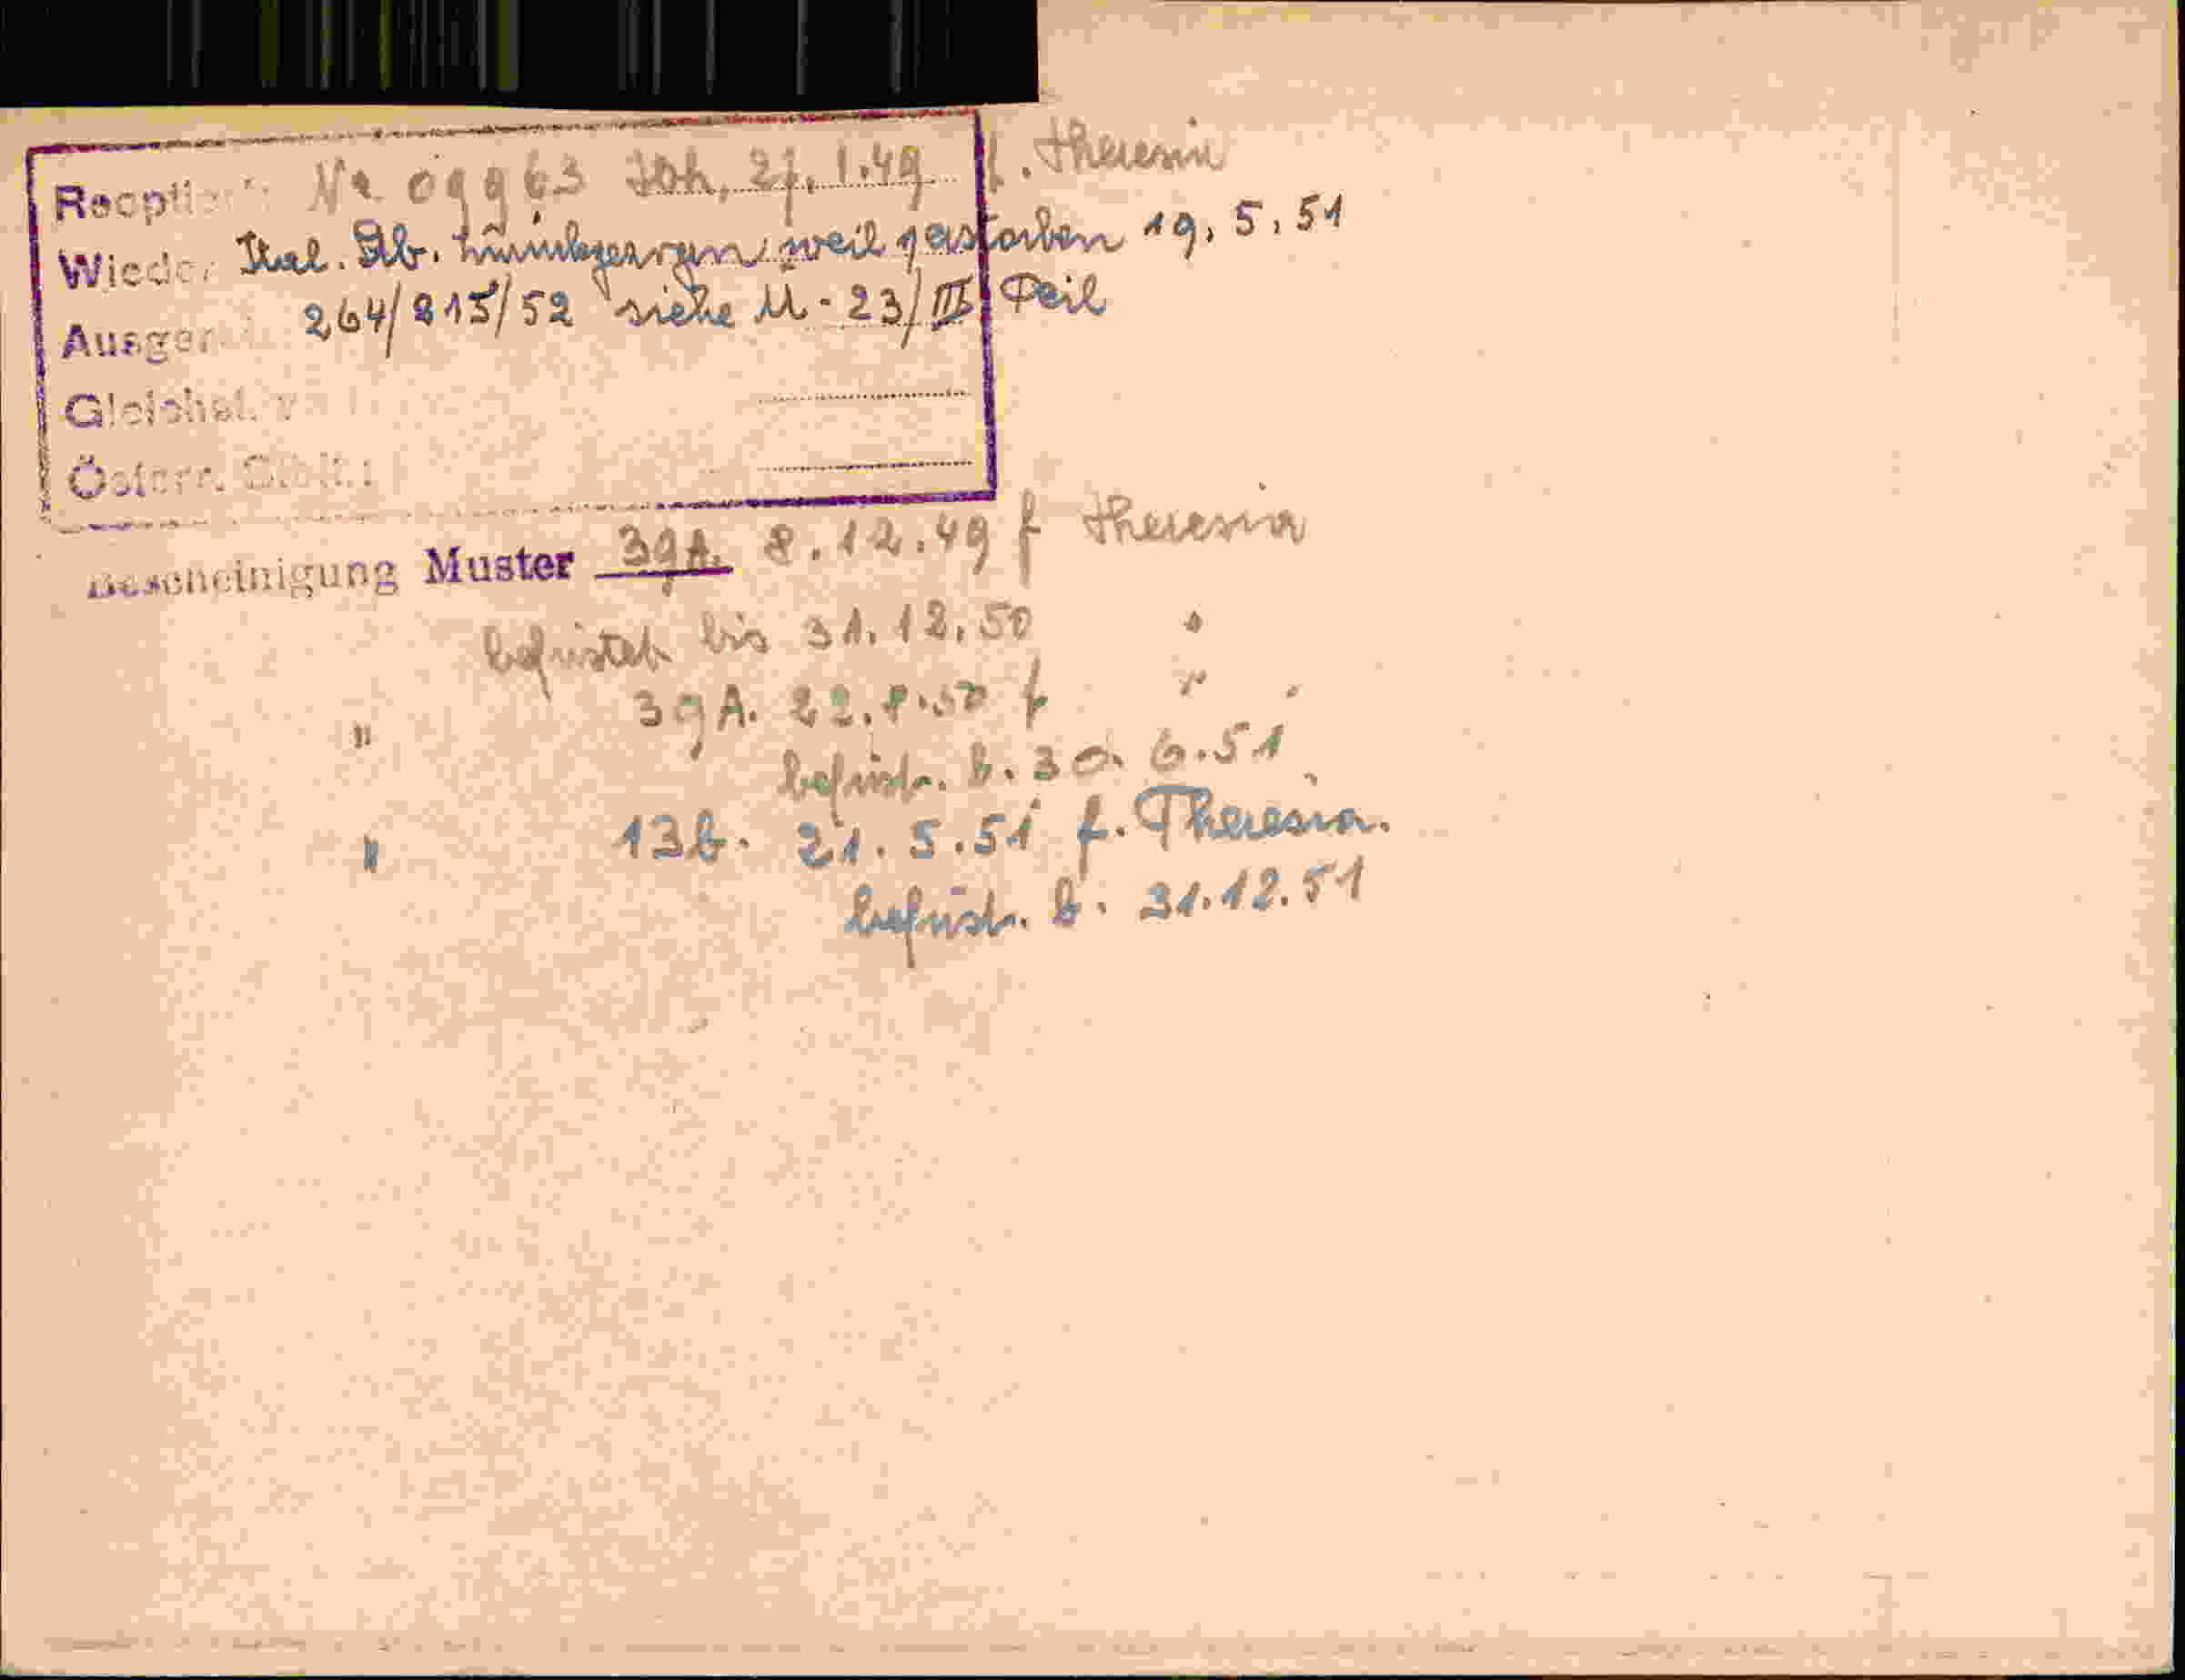 Reoption: Nr 09963 Joh, 27, 1.49 f. Theresia
Wieder Ital. Stb. weil gestorben 19, 5, 51
Ausger 264/215/52 siehe M-23/III Teil
Gleichst. v
Österr. Stb.:
Bescheinigung Muster 39A. 8.12.49 f Theresia
befristet bis 31.12.50 "
" 39A. 22.8.50 f " "
befrist. b. 30. 6.51
" 13b. 21. 5.51 f. Theresia.
befrist. b. 31.12.51